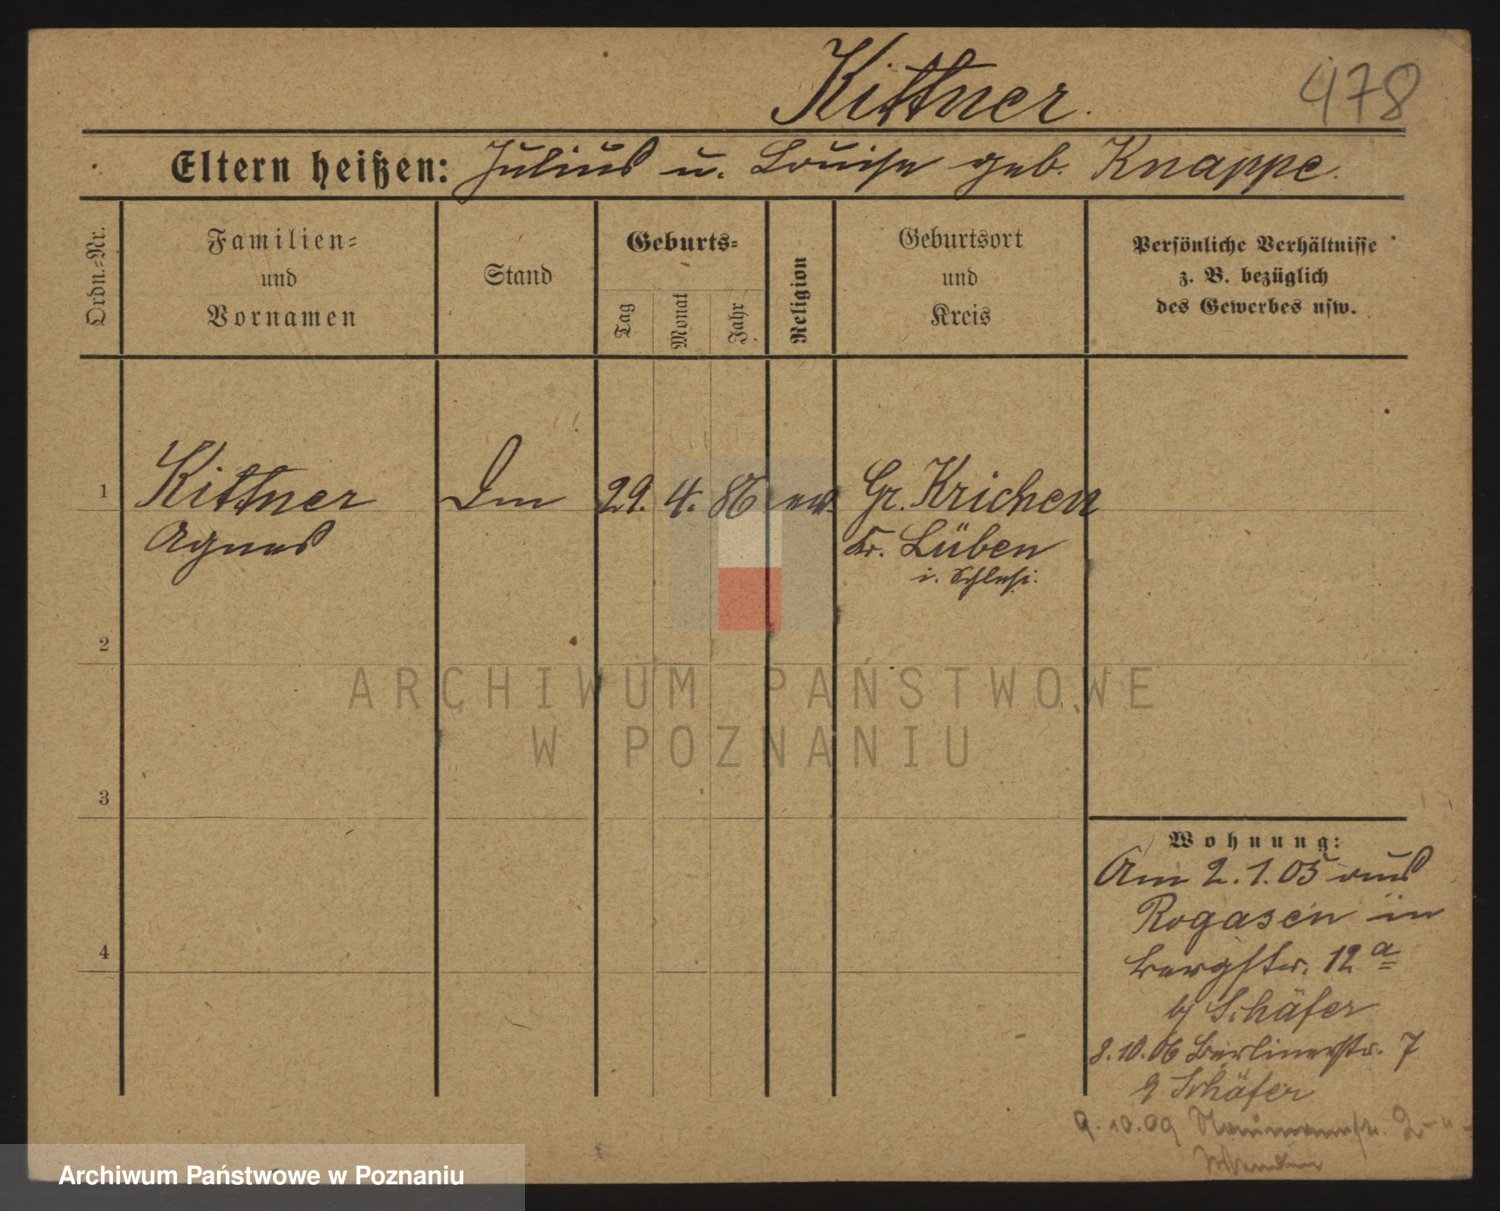 Kittner.
478
Eltern heißen: Julius u. Louise geb. Knappe.
Ordn.-Nr.
Familien- und Vornamen
Stand
Geburts-
Tag
Monat
Jahr
Religion
Geburtsort und Kreis
Persönliche Verhältnisse
z. B. bezüglich
des Gewerbes usw.
1 Kittner 29. 4. 86 ev. Gr. Krichen
Agnes Kr. Lüben
i. Schlesi.
2
ARCHIWUM PAŃSTWOWE
W POZNANIU
3
Wohnung:
Am 2.1.05 aus
Rogasen in
4
Bergstr. 12 a
bj Schäfer
8.10.06 Berlinerstr. 7
Schäfer
9.10.09 Naumannstr. 2
Archiwum Państwowe w Poznaniu